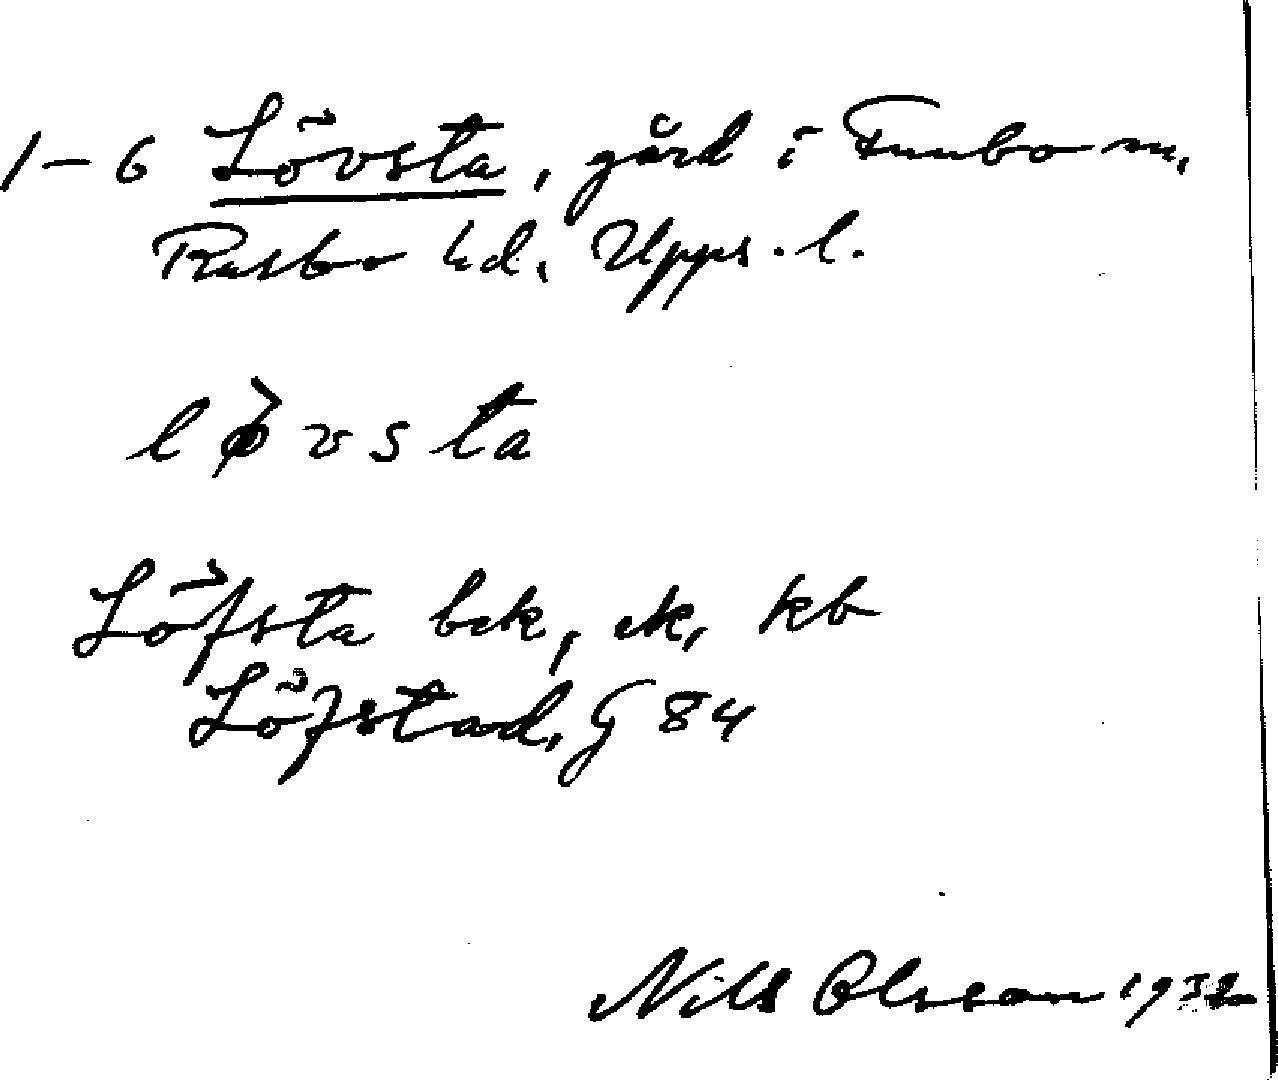 1-6 Lövsta, gård i Funbo sn,
Rasbo hd, Upps. l.
løvsta
Löfsta bek, ek, kb
Löfstad, G 84
Nils Olsson 1932